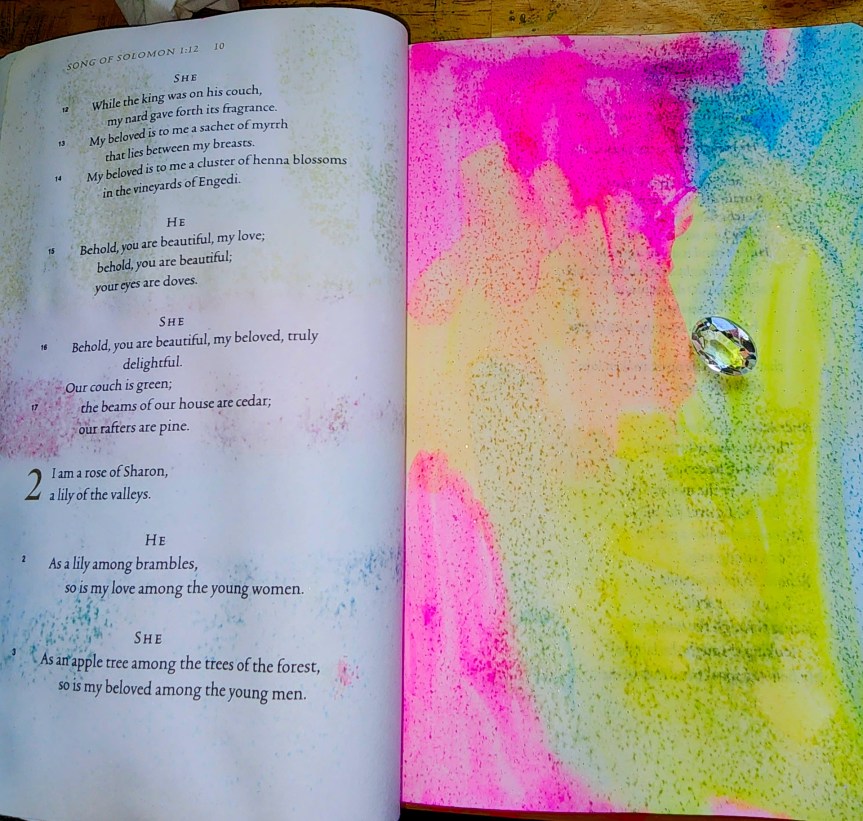 SONG OF SOLOMON 1:12 10
SHE
12 While the king was on his couch,
my nard gave forth its fragrance.
13 My beloved is to me a sachet of myrrh
that lies between my breasts.
14 My beloved is to me a cluster of henna blossoms
in the vineyards of Engedi.
HE
15 Behold, you are beautiful, my love;
behold, you are beautiful;
your eyes are doves.
SHE
16 Behold, you are beautiful, my beloved, truly
delightful.
Our couch is green;
17 the beams of our house are cedar;
our rafters are pine.
2 I am a rose of Sharon,
a lily of the valleys.
HE
2 As a lily among brambles,
so is my love among the young women.
SHE
3 As an apple tree among the trees of the forest,
so is my beloved among the young men.